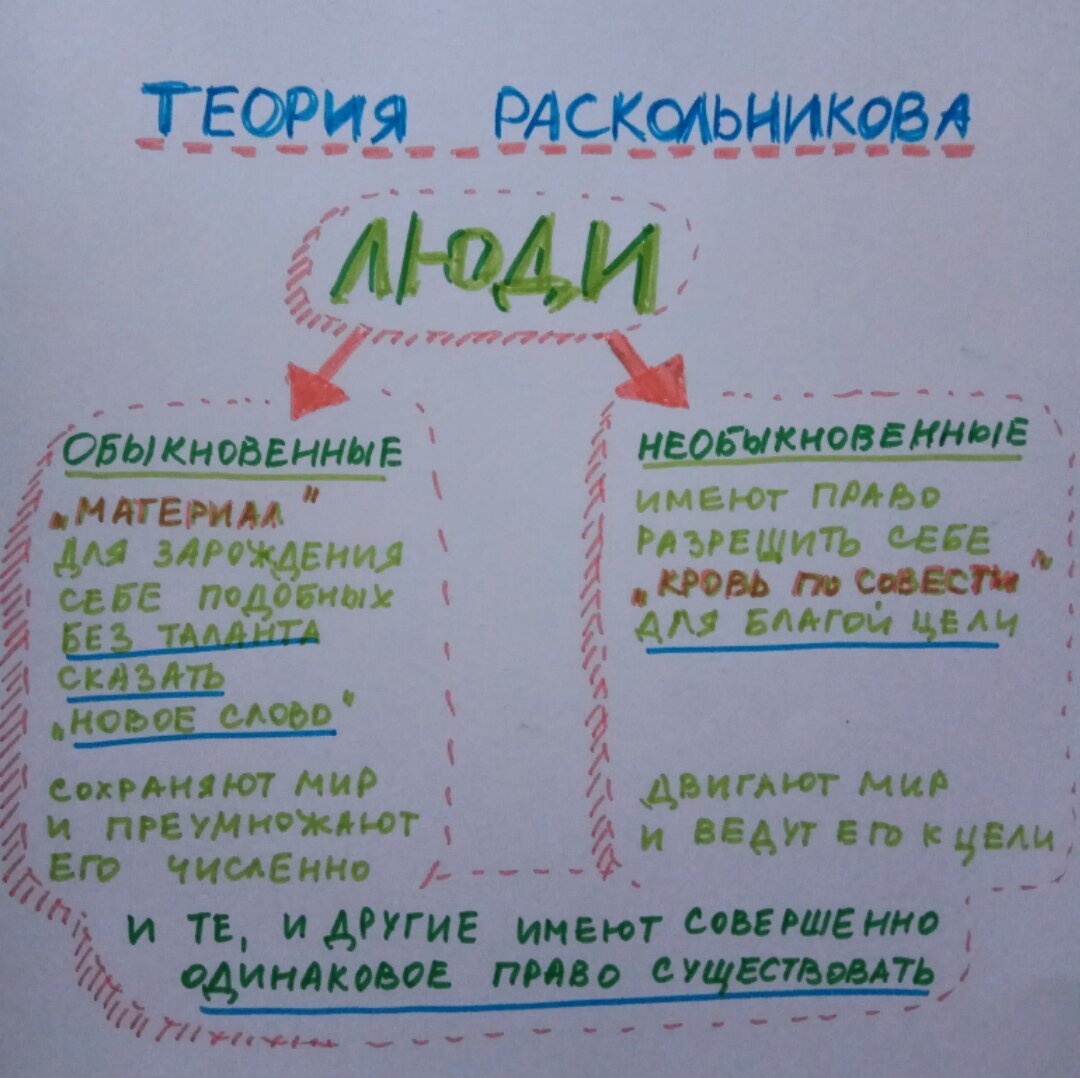 ТЕОРИЯ РАСКОЛЬНИКОВА
ЛЮДИ
ОБЫКНОВЕННЫЕ
„МАТЕРИАЛ"
ДЛЯ ЗАРОЖДЕНИЯ
СЕБЕ ПОДОБНЫХ
БЕЗ ТАЛАНТА
СКАЗАТЬ
„НОВОЕ СЛОВО"
СОХРАНЯЮТ МИР
И ПРЕУМНОЖАЮТ
ЕГО ЧИСЛЕННО
НЕОБЫКНОВЕННЫЕ
ИМЕЮТ ПРАВО
РАЗРЕШИТЬ СЕБЕ
„КРОВЬ ПО СОВЕСТИ"
ДЛЯ БЛАГОЙ ЦЕЛИ
ДВИГАЮТ МИР
И ВЕДУТ ЕГО К ЦЕЛИ
И ТЕ, И ДРУГИЕ ИМЕЮТ СОВЕРШЕННО
ОДИНАКОВОЕ ПРАВО СУЩЕСТВОВАТЬ